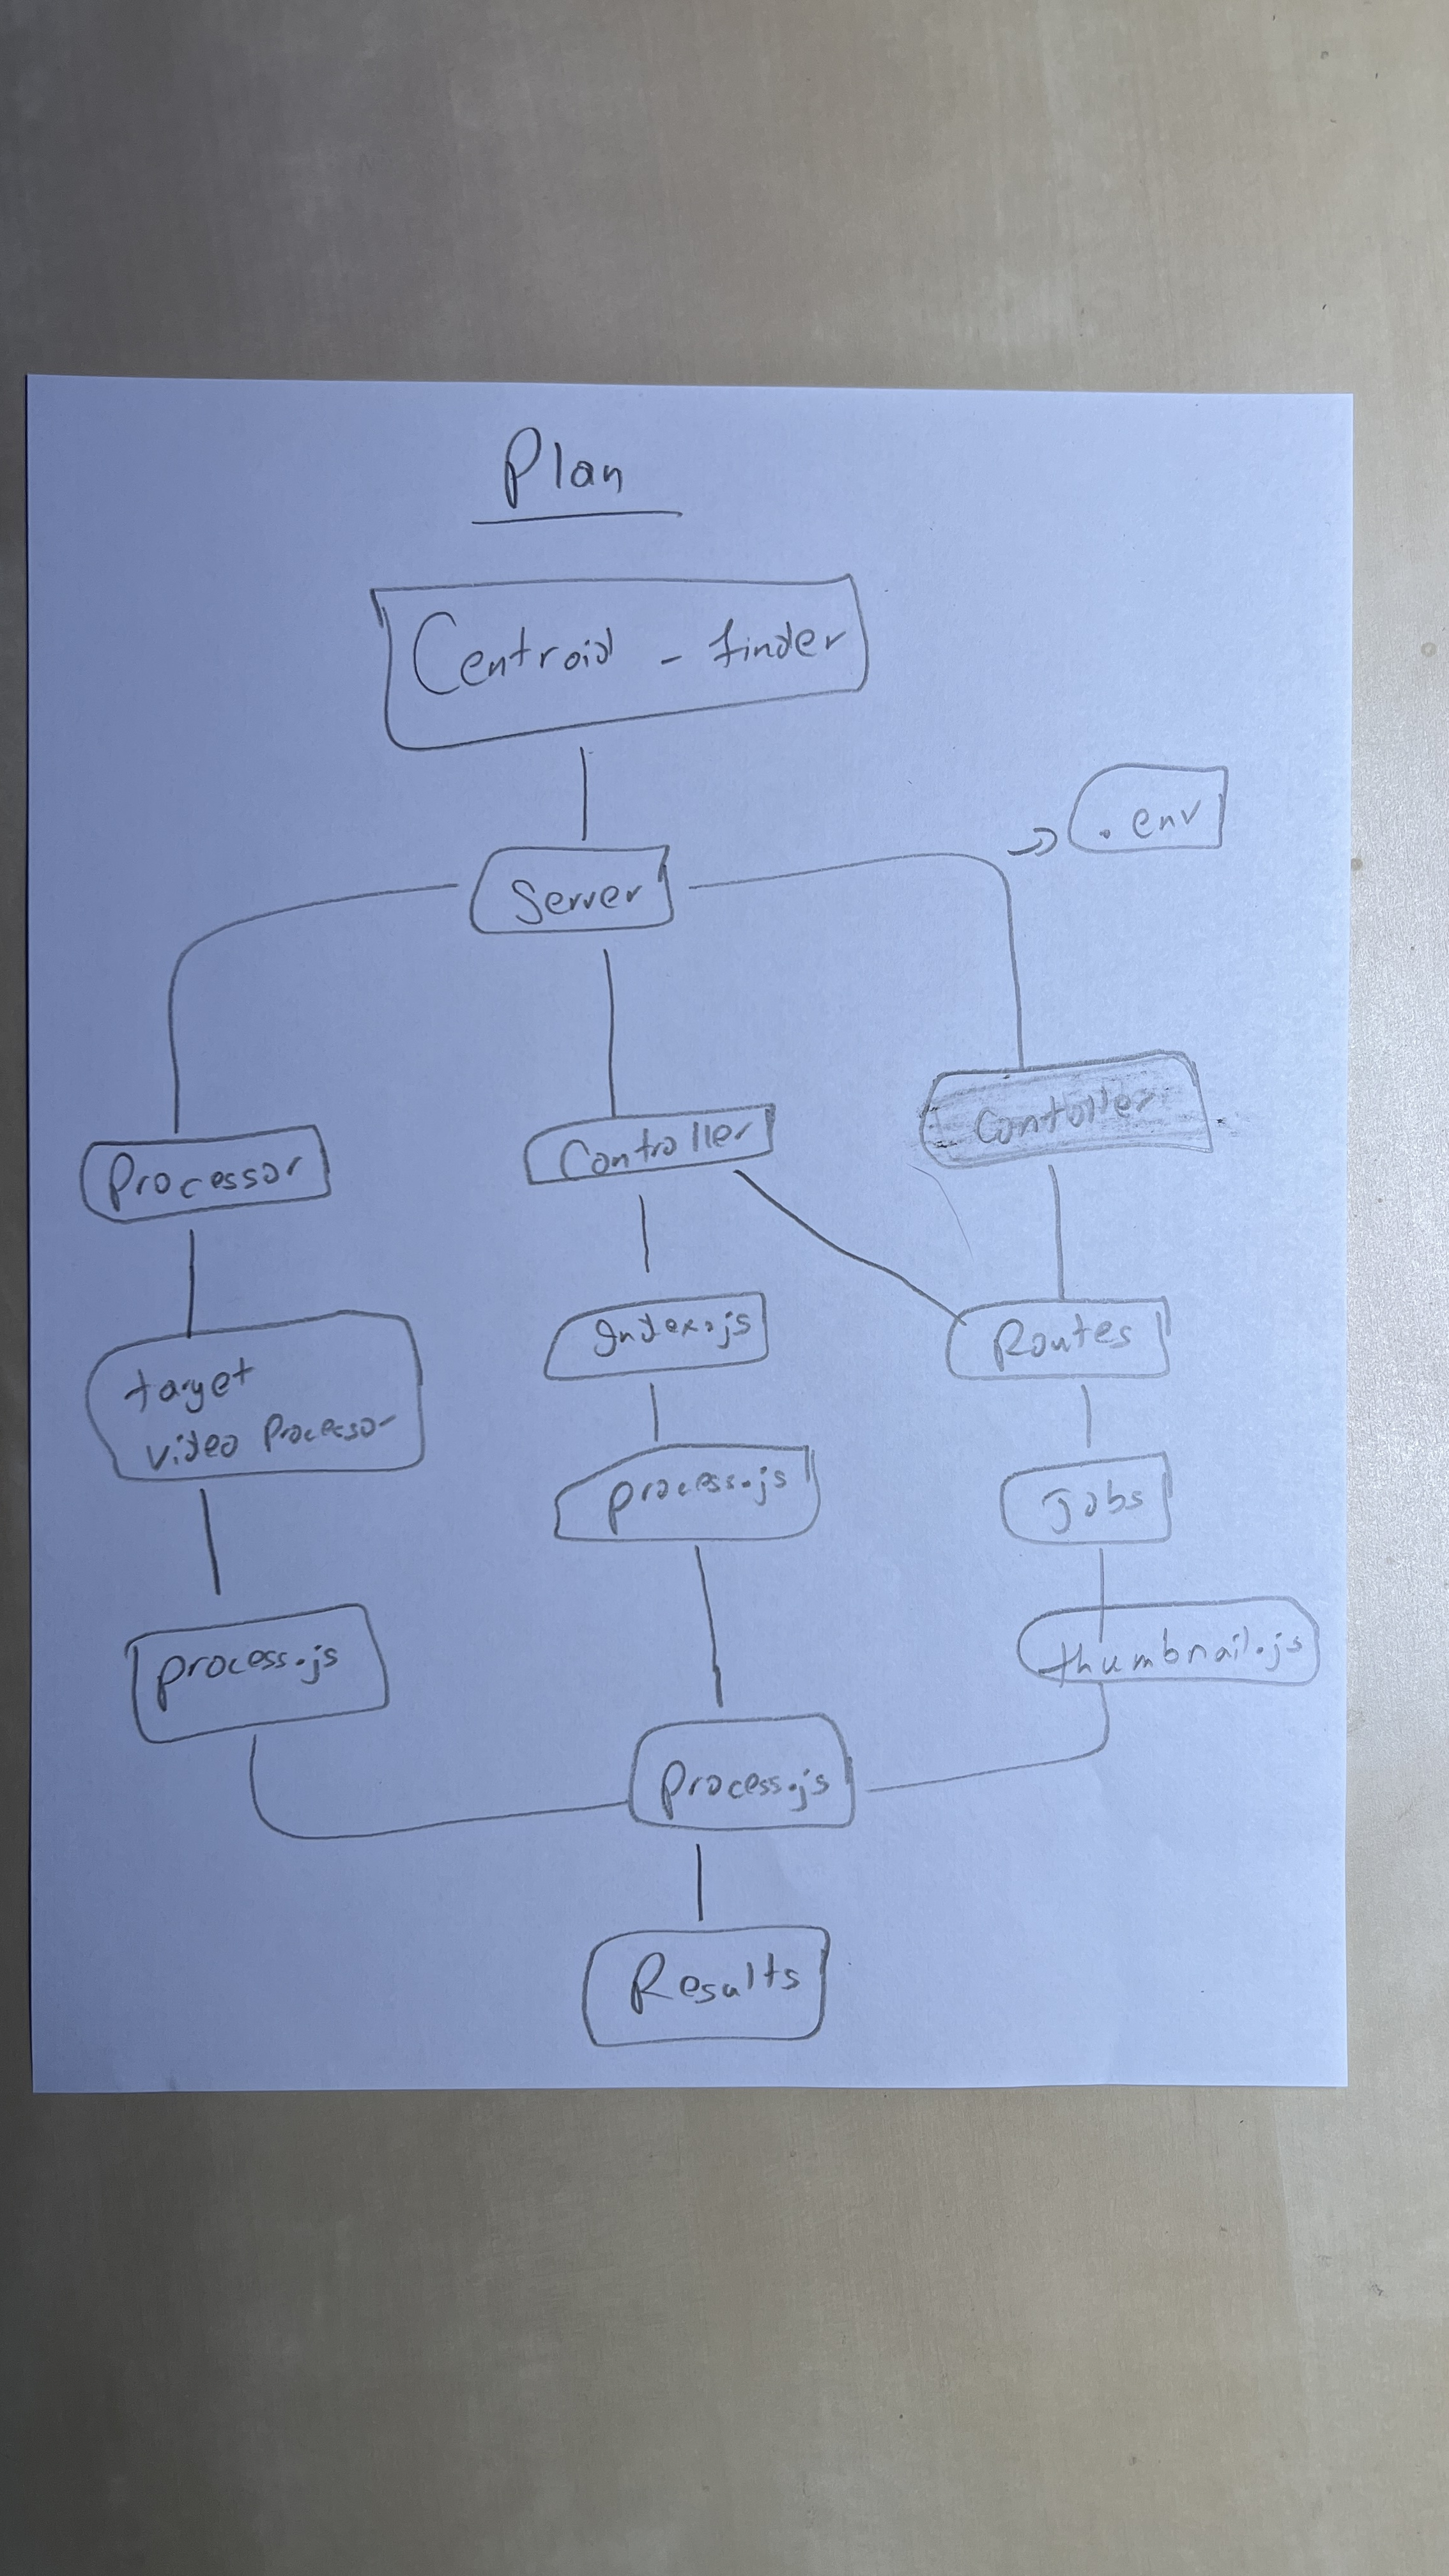 Plan
Centroid - finder
.env
Server
Processor
Controller
Contoller
target
video Processor
Index.js
Routes
process.js
Jobs
process.js
thumbnail.js
process.js
Results